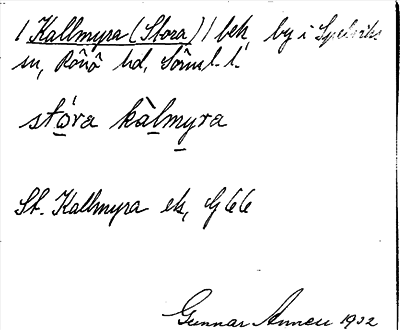 1 Kallmyra (Stora) 1 bek, by i Spelviks
sn, Rönö hd, Söml. l.
stóra kàlmyra
St. Kallmyra ek, G 66
Gunnar 1932